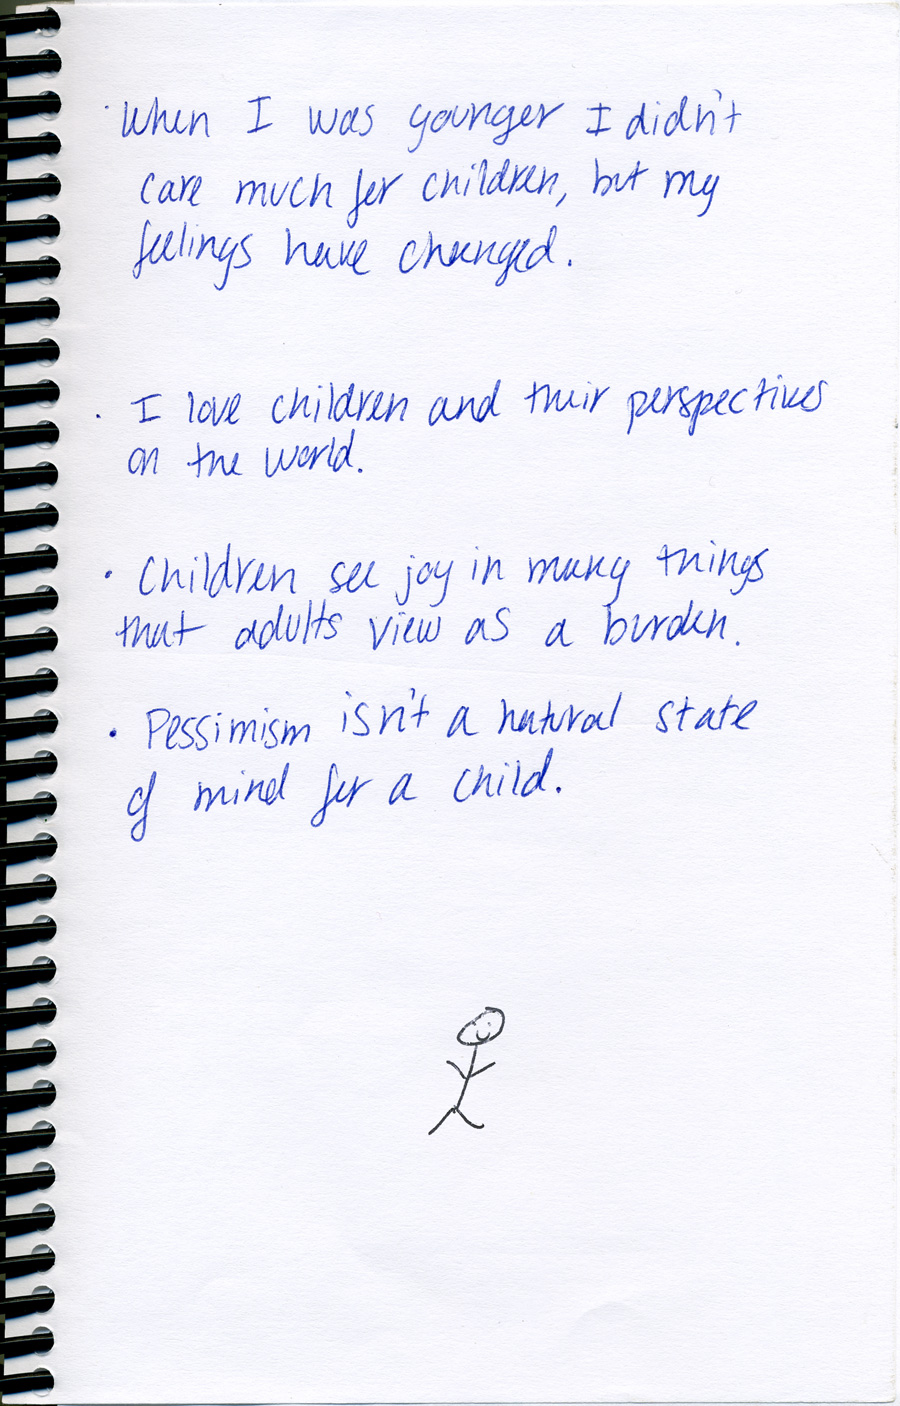 · When I was younger I didn't
care much for children, but my
feelings have changed.
· I love children and their perspectives
on the world.
· Children see joy in many things
that adults view as a burden.
· Pessimism isn't a natural state
of mind for a child.